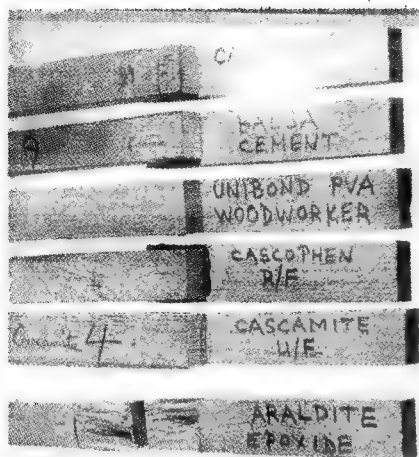 BALSA
CEMENT
UNIBOND PVA
WOODWORKER
CASCOPHEN
R/F
CASCAMITE
U/F
4
ARALDITE
EPOXIDE